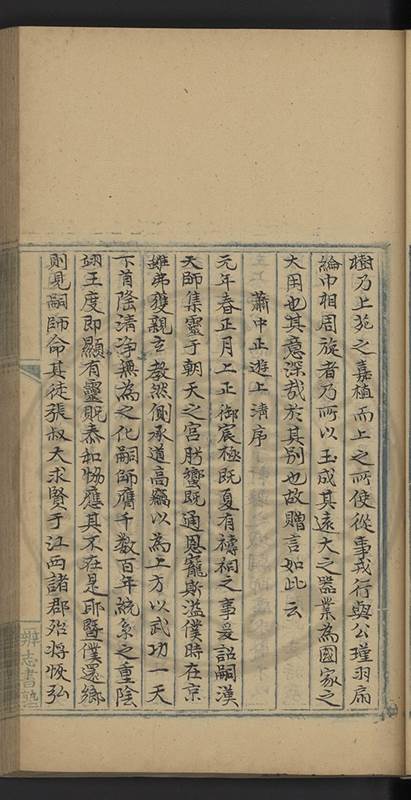 樹乃上苑之嘉植而上之所使從事戎行與公瑾羽扇
綸巾相周旋者乃所以玉成其遠大之器業為國家之
大用也其意深哉於其别也故贈言如此云
蕭中正遊上清序
元年春正月上正御宸極既夏有禱祠之事爰詔嗣漢
天師集靈于朝天之宫肹蠁既通恩寵斯溢僕時在京
雖弗獲親玄教然側承道高竊以為上方以武功一天
下首隆清浄無為之化嗣師膺千數百年統系之重陰
翊王度即顯有靈貺泰和恊應其不在是耶暨僕還鄉
則見嗣師命其徒張叔大求賢于江西諸郡殆將恢弘
辨志書塾